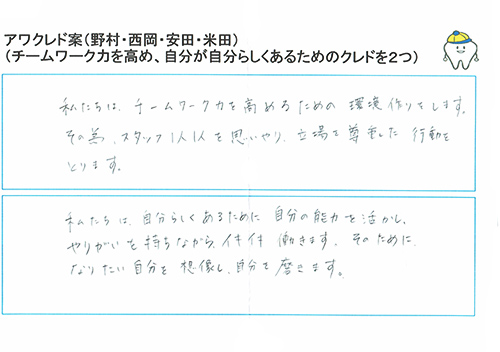 アワクレド案(野村・西岡・安田・米田)
(チームワーク力を高め、自分が自分らしくあるためのクレドを2つ)
私たちは、チームワーク力を高めるための 環境作りをします。
その為、スタッフ1人1人を思いやり、立場を尊重した 行動を
とります。
私たちは、自分らしくあるために 自分の能力を活かし、
やりがいを持ちながら、イキイキ 働きます。そのために、
なりたい自分を 想像し、自分を磨きます。